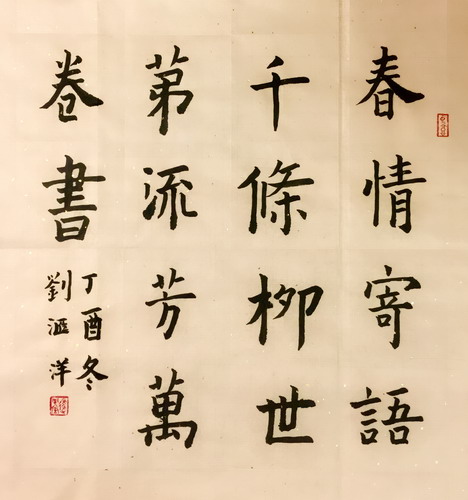 春情寄語
千條柳世
苐流芳萬
卷書
丁酉冬
劉滙洋